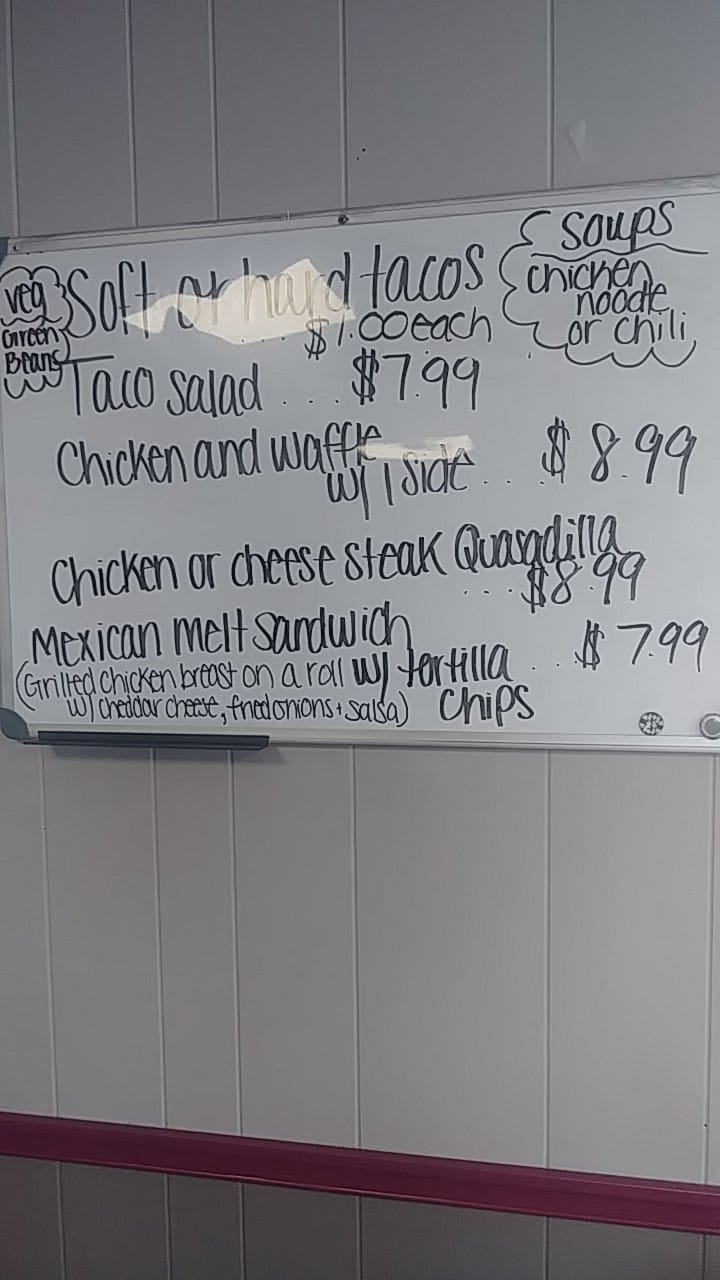 veg
Green
Beans
Soft or hard tacos
$1.00 each
soups
chicken
noodle
or chili
Taco salad ... $7.99
Chicken and waffle
w/ 1 side ... $8.99
Chicken or cheese steak Quasadilla
... $8.99
Mexican melt sandwich
(Grilled chicken breast on a roll w/ tortilla .. $7.99
w/ cheddar cheese, fried onions + salsa) chips